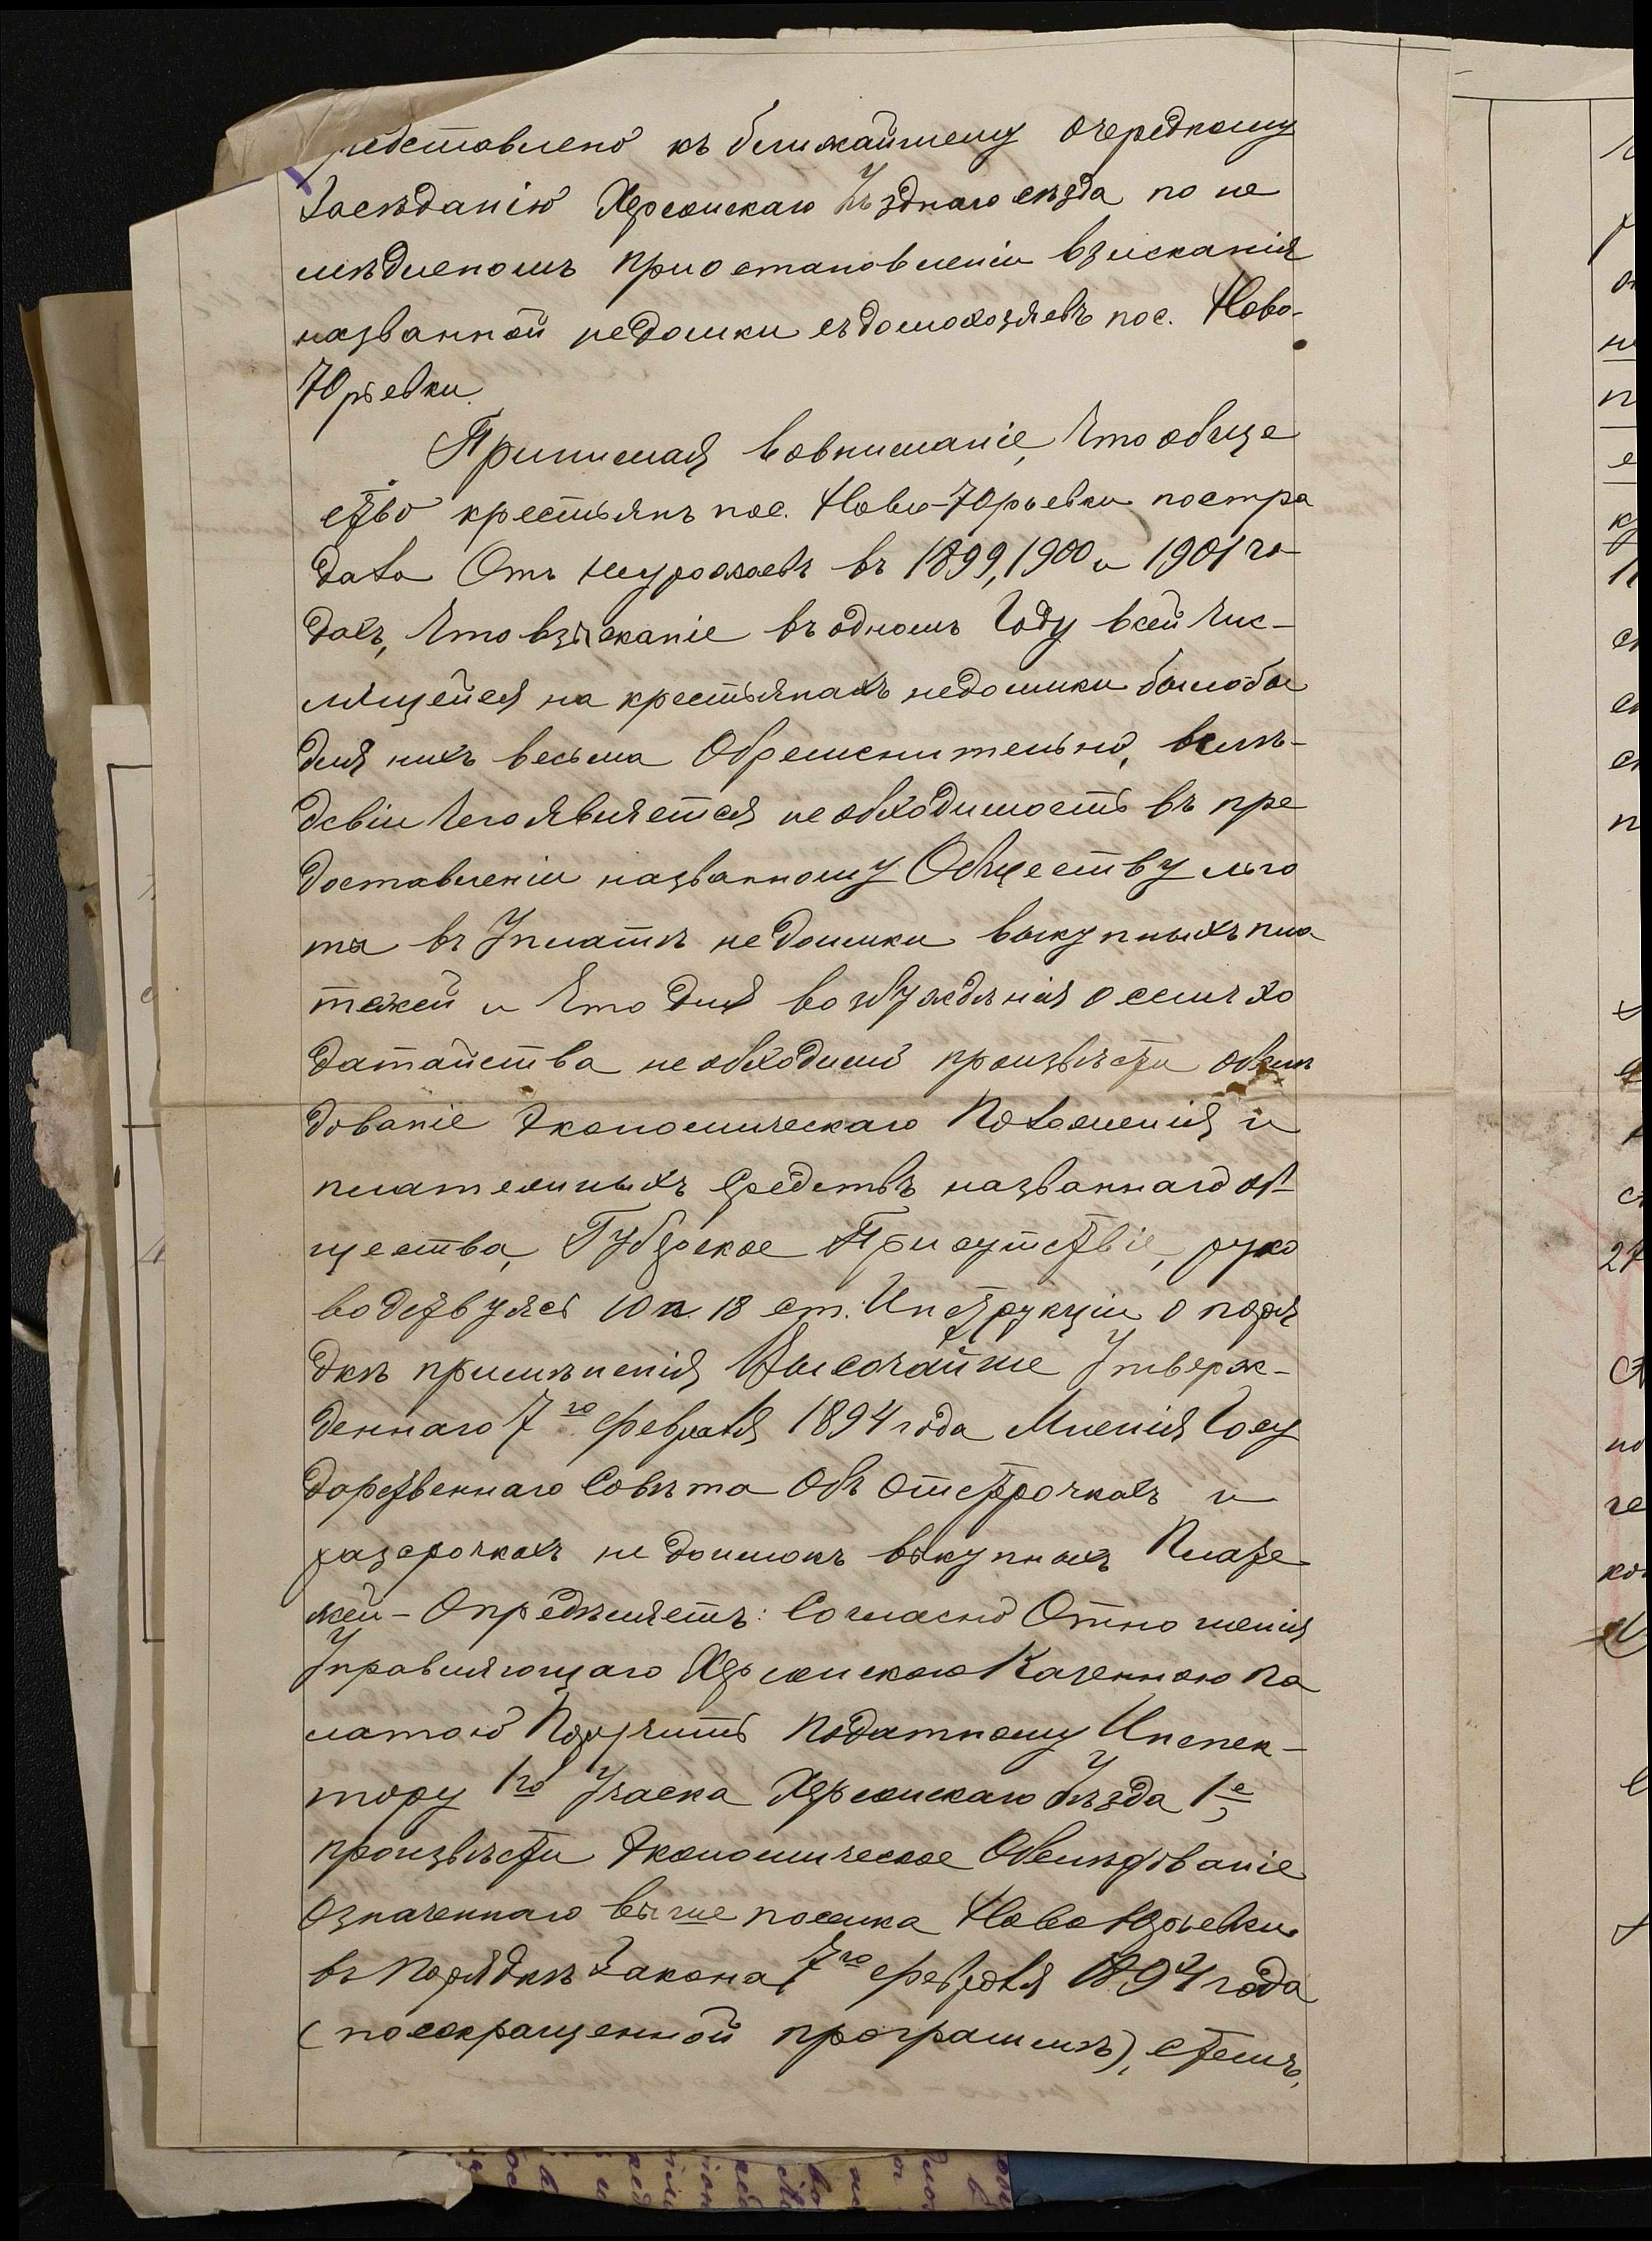 редставлено къ ближайшему очередному
Засѣданію Херсонскаго Уѣзднаго съѣзда по не
мѣдленомъ приостановленіи взысканія
названной недоимки съ домохозяевъ пос. Ново-
Юрьевки.
Принимая во вниманіе, что обще
ство крестьянъ пос. Ново-Юрьевки постра
дало Отъ неурожаевъ въ 1899, 1900 и 1901 го-
дахъ, что взысканіе въ одномъ Году всей чис-
лящейся на крестьянахъ недоимки было бы
для нихъ весьма Обременительно, вслѣ-
дсвіи чего является необходимость въ пре
доставленіи названному Обществу льго
ты въ Уплатѣ недоимки выкупныхъ пла
тежей и что для возбужденія о семъ хо
датайства необходимо произвѣсти обслѣ
дованіе Экономическаго Положенія и
платежныхъ Средствъ названнаго об-
щества, Губерское Присутствіе, руко
водствуясь 10 п. 18 ст. Инструкціи о поря
дкѣ примѣненія Высочайше Утверж-
деннаго 7го февраля 1894 года Мненія Госу
дарственнаго Совѣта Объ отстрочкахъ и
разсрочкахъ недоимокъ выкупныхъ Плате
жей - Опредѣляетъ: Согласно Отношенія
Управляющаго Херсонскою Казенною Па
латою Поручить Податному Инспек-
тору 1го Участка Херсонскаго Уѣзда 1е,
произвѣсти Экономическое Обслѣдованіе
Означеннаго выше поселка Ново Юрьевки
въ Порядкѣ Закона 7го февраля 1894 года
(по сокращенной программѣ), стемъ,